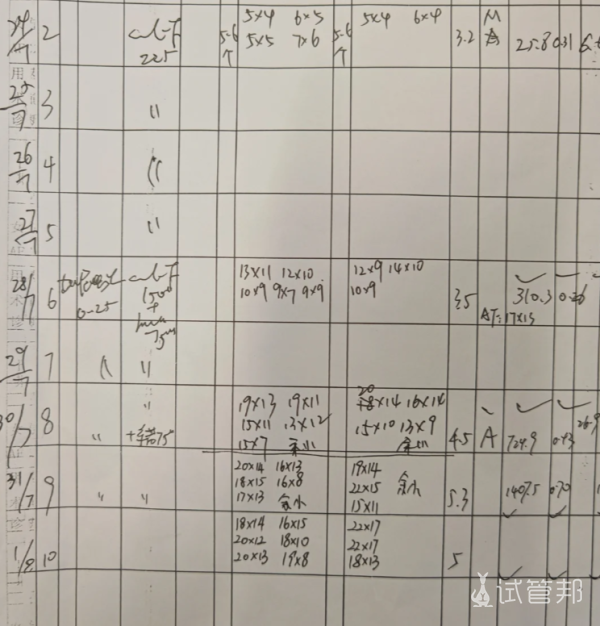 24/7 2 225 5-6个 5×4 6×5 5-6个 5×4 6×4 3.2 M 25.8 0.31
5×5 7×6
25/7 3 "
26/7 4 "
27/7 5 "
28/7 6 0.25 13×11 12×10 12×9 14×10 3.5 310.3
10×9 9×7 9×9 10×9
150u + 75u 17×13
29/7 7 " "
30/7 8 " " 19×13 19×11 20 18×14 16×14
+ 75 15×11 13×12 15×10 13×9 4.5 A 724.9 0.43
15×7 余小 余小
31/7 9 " " 20×14 16×13 19×14
18×15 16×8 22×15 余小 5.3 1407.5 0.70
17×13 余小 15×11
1/8 10 18×14 16×15 22×17
20×12 18×10 22×17 5
20×13 19×8 18×13
试管邦